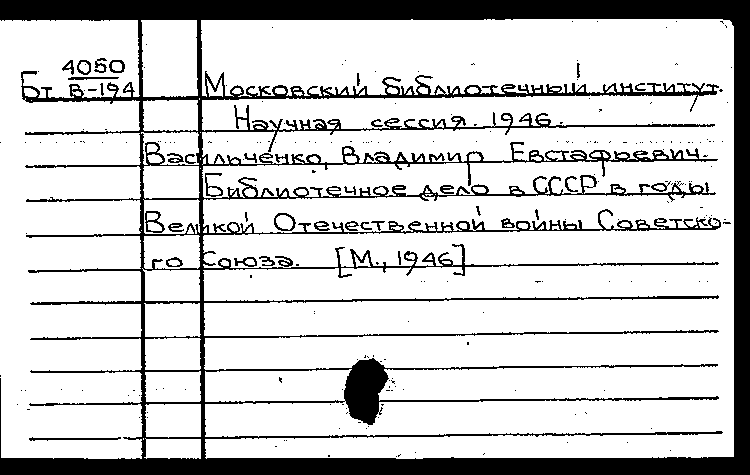 4050
Бт В-194 Московский библиотечный институт.
Научная сессия. 1946.
Васильченко, Владимир Евстафьевич.
Библиотечное дело в СССР в годы
Великой Отечественной войны Советско-
го Союза. [М., 1946]